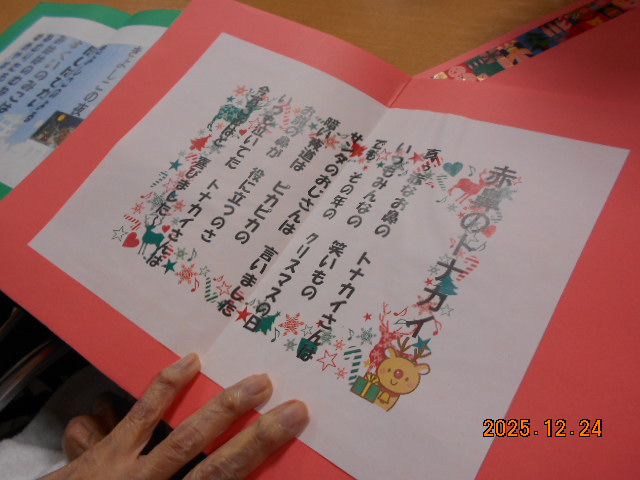 赤鼻のトナカイ
真っ赤なお鼻の トナカイさんは
いつもみんなの 笑いもの
でも その年の クリスマスの日
サンタのおじさんは 言いました
暗い夜道は ピカピカの
お前の鼻が 役に立つのさ
いつも泣いてた トナカイさんは
今宵こそはと 喜びました
きよしこの夜
2025.12.24